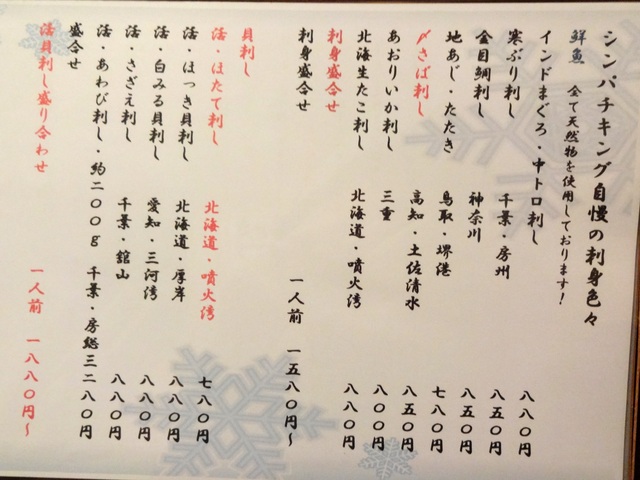 シンパチキング自慢の刺身色々
鮮魚 全て天然物を使用しております!
インドまぐろ・中トロ刺し 八八〇円
寒ぶり刺し 千葉・房州 八五〇円
金目鯛刺し 神奈川 八五〇円
地あじ・たたき 鳥取・堺港 七八〇円
〆さば刺し 高知・土佐清水 八五〇円
あおりいか刺し 三重 八〇〇円
北海生たこ刺し 北海道・噴火湾 八八〇円
刺身盛合せ
刺身盛合せ 一人前 一五八〇円~
貝刺し
活・ほたて刺し 北海道・噴火湾 七八〇円
活・ほっき貝刺し 北海道・厚岸 八八〇円
活・白みる貝刺し 愛知・三河湾 八八〇円
活・さざえ刺し 千葉・舘山 八八〇円
活・あわび刺し・約二〇〇g 千葉・房総 三二八〇円
盛合せ
活貝刺し盛り合わせ 一人前 一八八〇円~